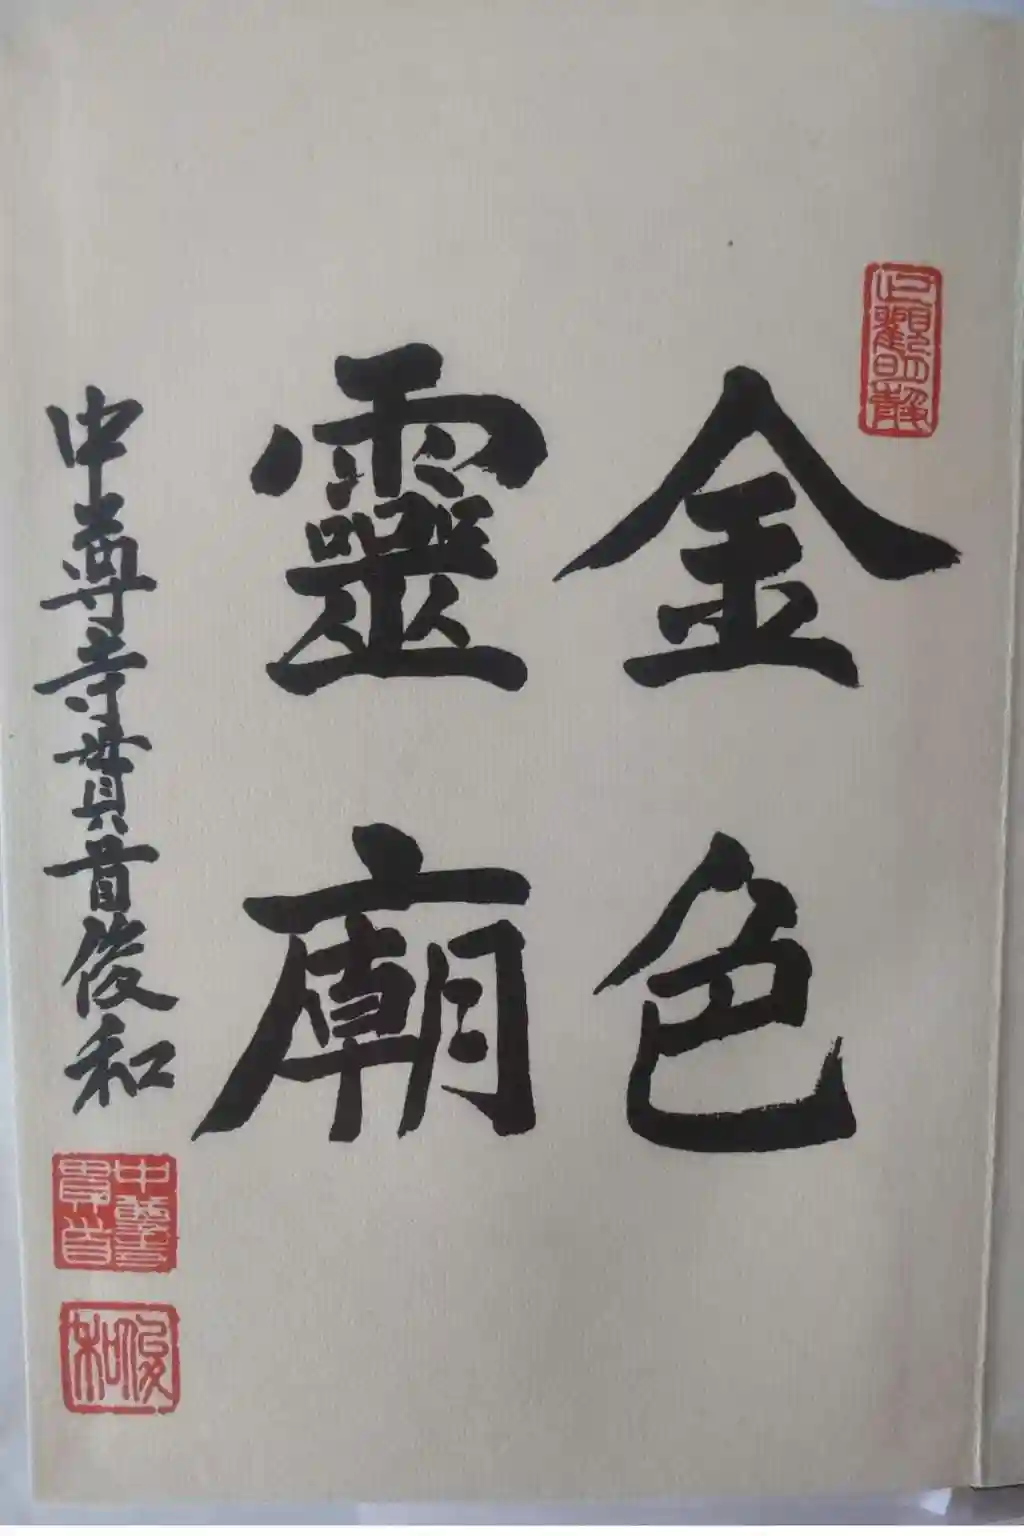 金色
靈廟
中尊寺貫首俊和
止觀明静
中尊寺貫首
俊和